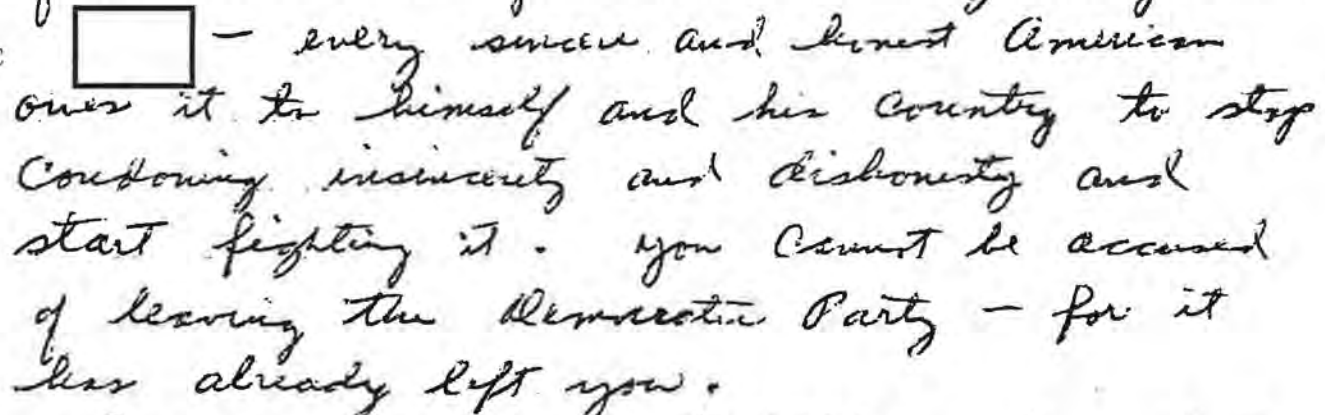 — every sincere and honest American
owes it to himself and his Country to stop
Condoning insincerity and dishonesty and
start fighting it. you Cannot be accused
of leaving the Democratic Party — for it
has already left you.